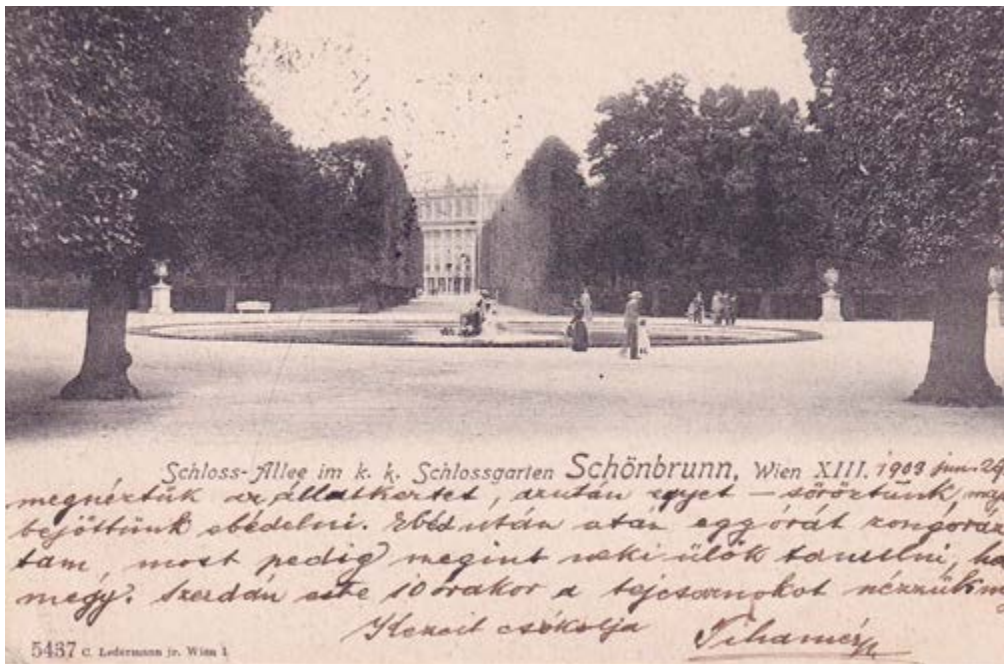 Schloss-Allee im k. k. Schlossgarten Schönbrunn, Wien XIII. 1903 jun. 29
megnéztük az állatkertet, azután egyet — söröztünk, maj
bejöttünk ebédelni. Ebéd után egy órát zongoráz
tam, most pedig megint neki ülök tanulni, ha
megy. Szerdán este 10 órakor a nézzük m
Kezeit csókolja Tihamér
5437 C. Ledermann jr. Wien I